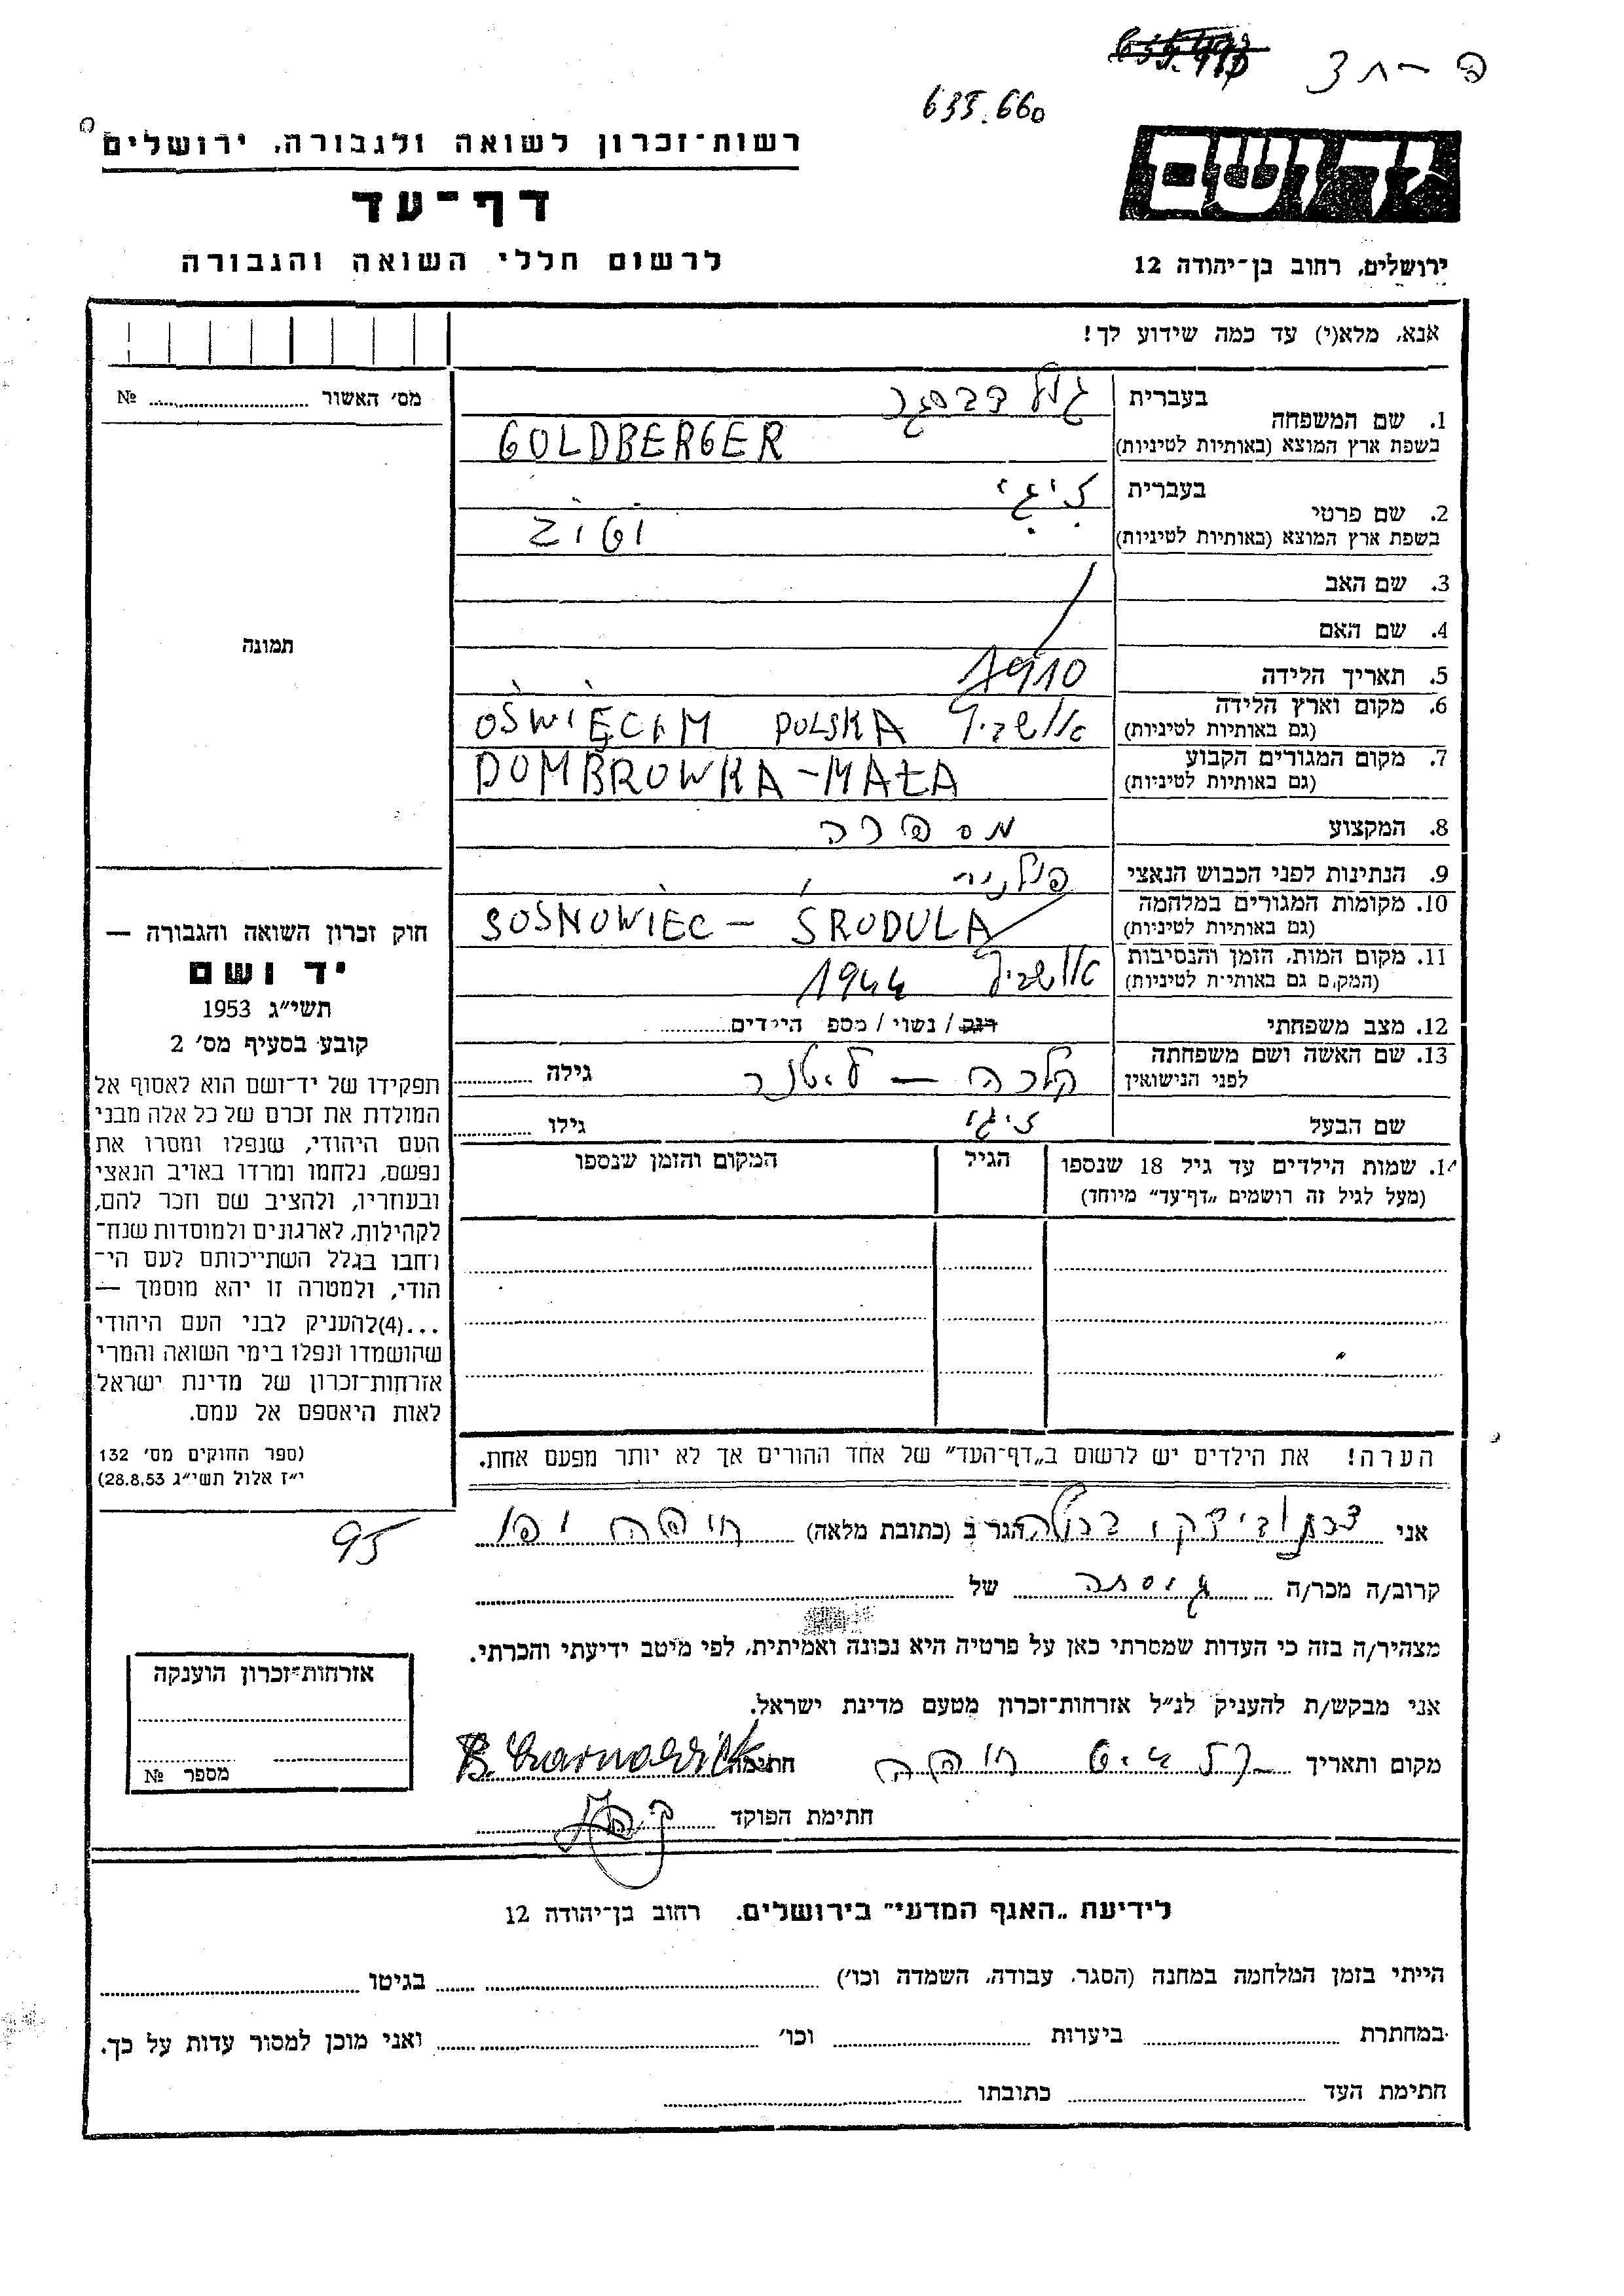 635.660
רשות-זכרון לשואה ולגבורה, ירושלים
דף-עד
לרשום חללי השואה והגבורה
יד ושם
ירושלים, רחוב בן-יהודה 12
אנא, מלא(י) עד כמה שידוע לך!
מס׳ האשור № ............
1. שם המשפחה
בעברית גולדברגר
בשפת ארץ המוצא (באותיות לטיניות) GOLDBERGER
2. שם פרטי
בעברית זיגי
בשפת ארץ המוצא (באותיות לטיניות) ZIGI
3. שם האב
4. שם האם
5. תאריך הלידה 1910
6. מקום וארץ הלידה
(גם באותיות לטיניות) אושביץ OŚWIĘCIM POLSKA
7. מקום המגורים הקבוע
(גם באותיות לטיניות) DOMBROWKA-MAŁA
8. המקצוע מספרה
9. הנתינות לפני הכבוש הנאצי פולנית
10. מקומות המגורים במלחמה
(גם באותיות לטיניות) SOSNOWIEC – ŚRODULA
11. מקום המות, הזמן והנסיבות
(המקום גם באותיות לטיניות) אושביץ 1944
12. מצב משפחתי רווק / נשוי / מספ הילדים............
13. שם האשה ושם משפחתה
לפני הנישואין גילה ............
שם הבעל זיגי גילו ............
14. שמות הילדים עד גיל 18 שנספו
(מעל לגיל זה רושמים „דף-עד״ מיוחד)
הגיל
המקום והזמן שנספו
תמונה
חוק זכרון השואה והגבורה —
יד ושם
תשי״ג 1953
קובע בסעיף מס׳ 2
תפקידו של יד-ושם הוא לאסוף אל
המולדת את זכרם של כל אלה מבני
העם היהודי, שנפלו ומסרו את
נפשם, נלחמו ומרדו באויב הנאצי
ובעוזריו, ולהציב שם וזכר להם,
לקהילות, לארגונים ולמוסדות שנח-
רחבו בגלל השתייכותם לעם הי-
הודי, ולמטרה זו יהא מוסמך —
...(4)להעניק לבני העם היהודי
שהושמדו ונפלו בימי השואה והמרי
אזרחות-זכרון של מדינת ישראל
לאות היאספם אל עמם.
(ספר החוקים מס׳ 132
י״ז אלול תשי״ג 28.8.53)
הערה! את הילדים יש לרשום ב„דף-העד״ של אחד ההורים אך לא יותר מפעם אחת.
95
אני הגר ב (כתובת מלאה) חיפה
קרוב/ה מכר/ה גיסתה של ............
מצהיר/ה בזה כי העדות שמסרתי כאן על פרטיה היא נכונה ואמיתית, לפי מיטב ידיעתי והכרתי.
אני מבקש/ת להעניק לנ״ל אזרחות-זכרון מטעם מדינת ישראל.
מקום ותאריך חיפה חתימה
חתימת הפוקד
אזרחות-זכרון הוענקה
מספר №
לידיעת „האגף המדעי״ בירושלים. רחוב בן-יהודה 12
הייתי בזמן המלחמה במחנה (הסגר, עבודה, השמדה וכו׳) ............ בגיטו ............
במחתרת ............ ביערות ............ וכו׳ ............ ואני מוכן למסור עדות על כך.
חתימת העד ............ כתובתו ............